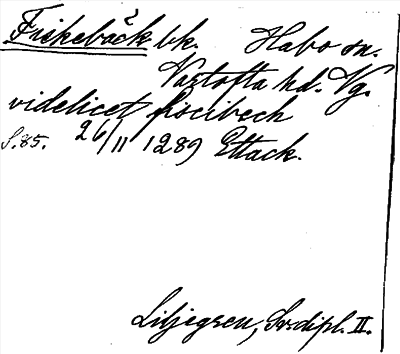 Friskebäck bk. Habo sn.
Vartofta hd. Vg.
videlicet fiscibech
S. 85. 26/11 1289 Ettack.
Liljegren, Sv. dipl. II.